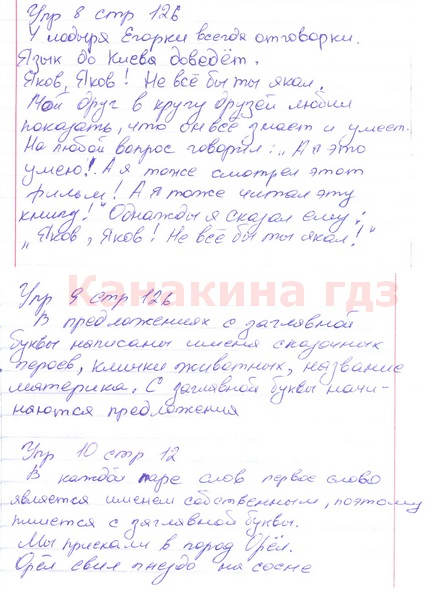 Упр 8 стр 126
У лодыря Егорки всегда отговорки.
Язык до Киева доведёт.
Яков, Яков! Не всё бы ты якал.
Мой друг в кругу друзей любил
показать, что он всё знает и умеет.
На любой вопрос говорил: „А я это
умею! А я тоже смотрел этот
фильм! А я тоже читал эту
книгу!" Однажды я сказал ему:
„Яков, Яков! Не всё бы ты якал!"
Канакина гдз
Упр 9 стр 126
В предложениях с заглавной
буквы написаны имена сказочных
героев, клички животных, название
материка. С заглавной буквы начи-
наются предложения
Упр 10 стр 12
В каждой паре слов первое слово
является именем собственным, поэтому
пишется с заглавной буквы.
Мы приехали в город Орёл.
Орёл свил гнездо на сосне